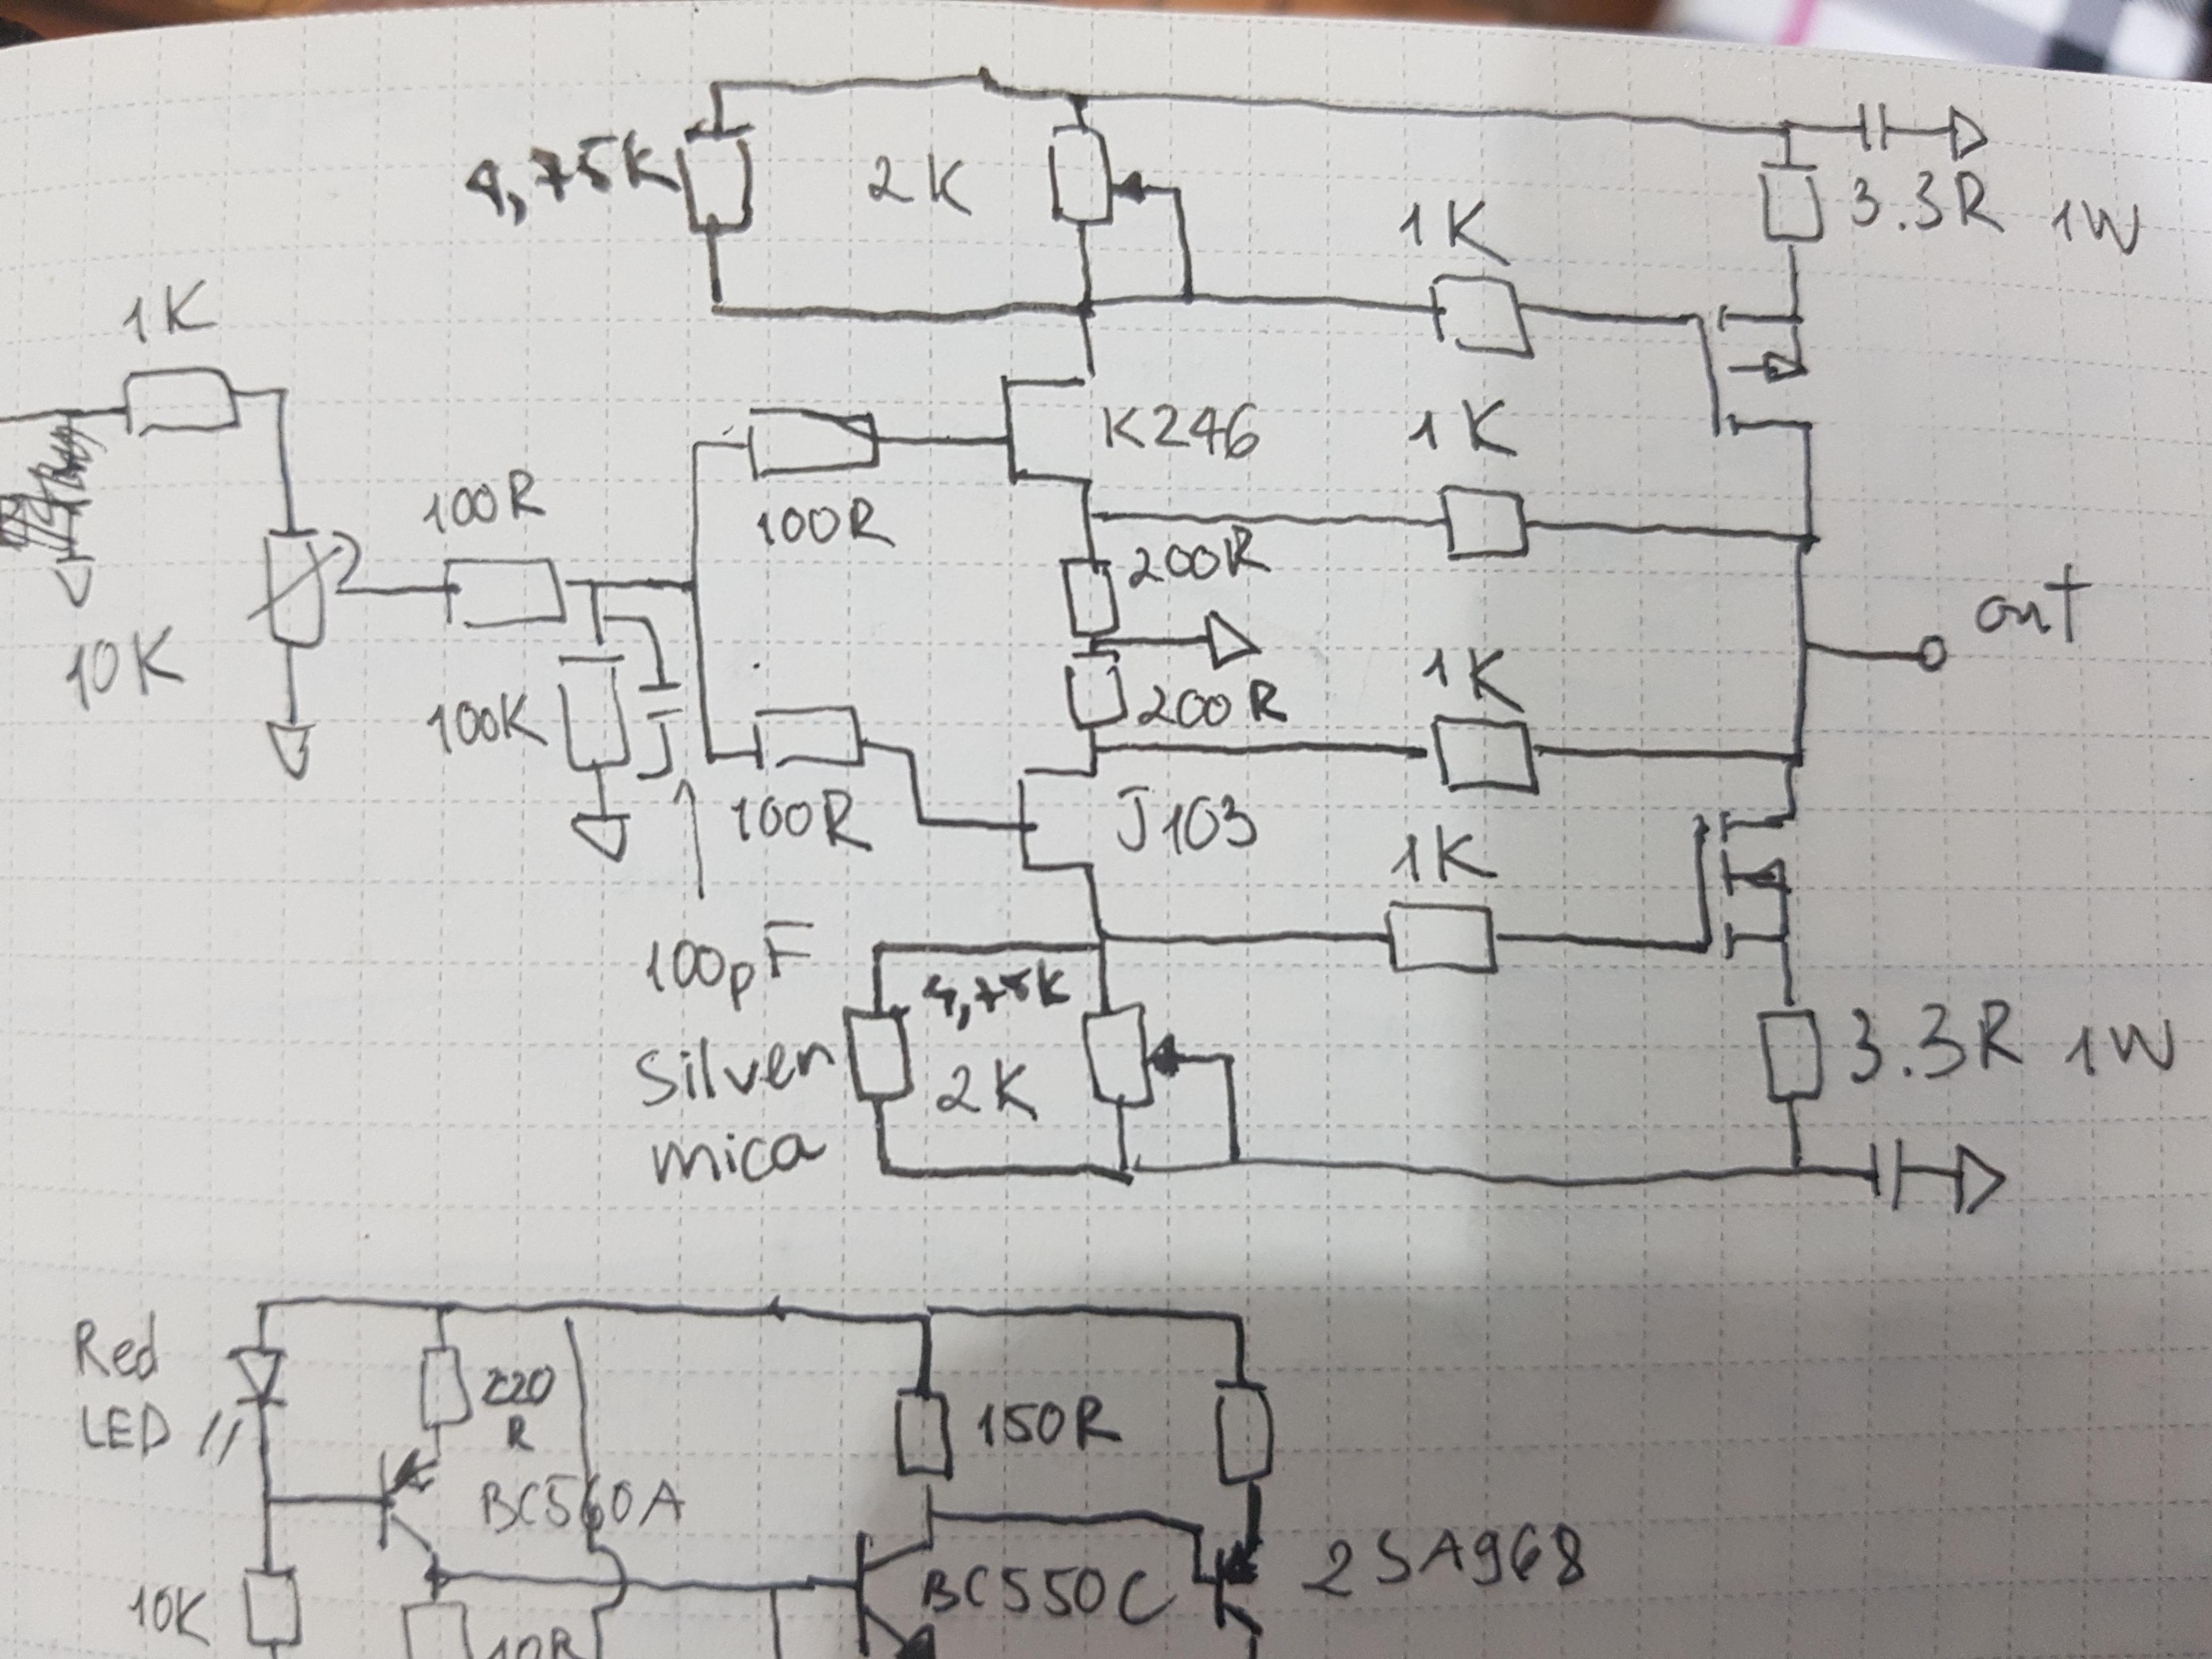 4,75K
2K
3.3R 1W
1K
1K
K246
1K
100R
100R
200R
out
10K
1K
100K
200R
100R
J103
1K
100pF
silver
mica
4,75K
2K
3.3R 1W
Red
LED
220
R
150R
BC560A
2SA968
BC550C
10K
10R